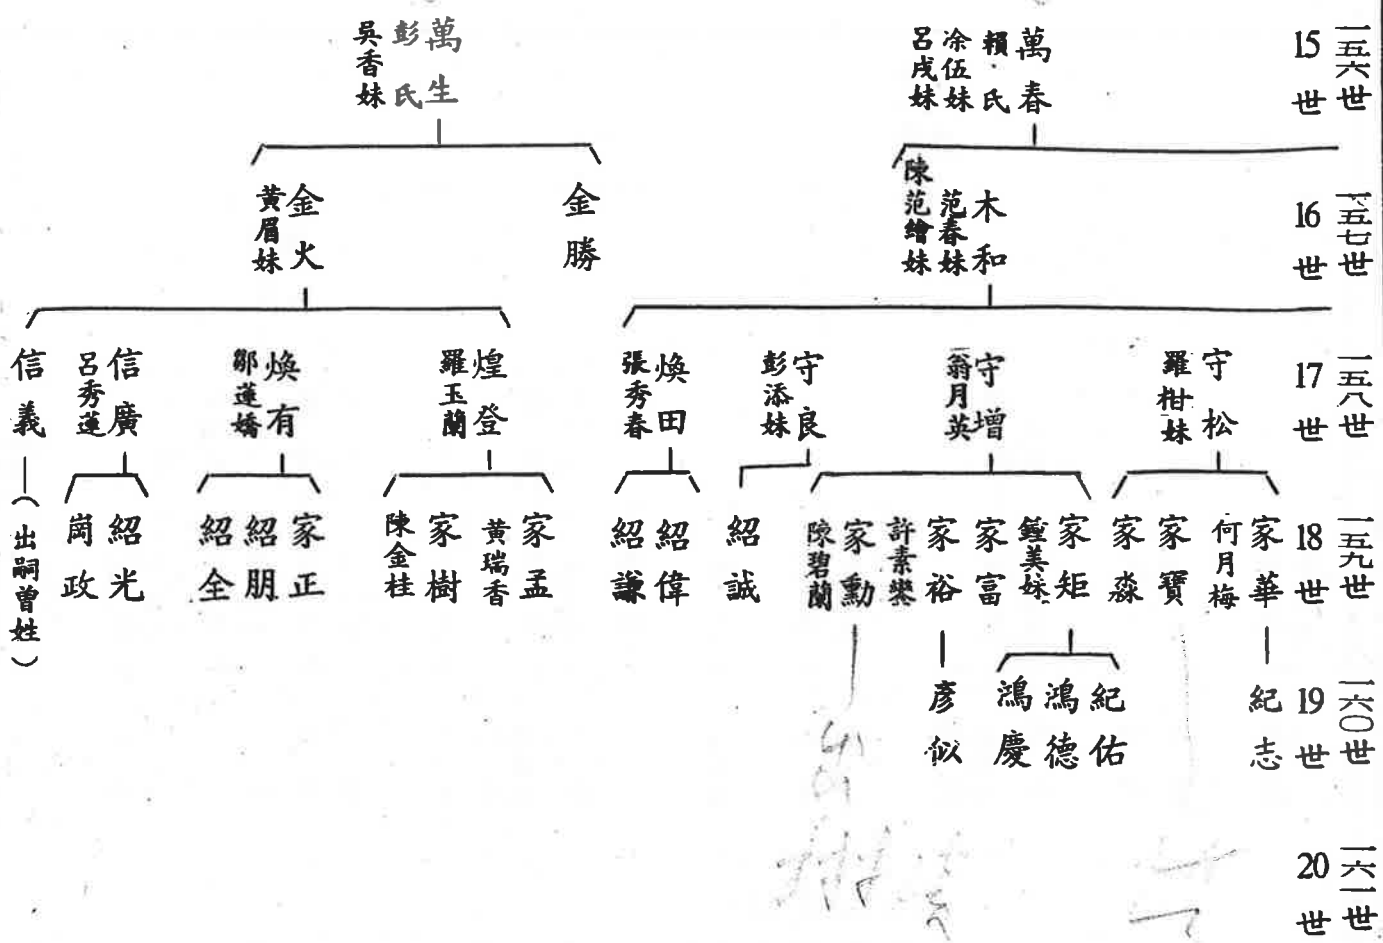 一五六世
15世
萬春
賴氏
凃伍妹
呂戌妹
萬生
彭氏
吳香妹
一五七世
16世
木和
范春妹
陳范繪妹
金勝
金火
黃眉妹
一五八世
17世
守松
羅柑妹
守增
翁月英
守良
彭添妹
煥田
張秀春
煌登
羅玉蘭
煥有
鄒蓮嬌
信廣
呂秀蓮
信義
(出嗣曾姓)
一五九世
18世
家華
何月梅
家寶
家淼
家矩
鍾美妹
家富
家裕
許素欒
家勳
陳碧蘭
紹誠
紹偉
紹謙
家孟
黃瑞香
家樹
陳金桂
家正
紹朋
紹全
紹光
崗政
一六〇世
19世
紀志
紀佑
鴻德
鴻慶
彥似
一六一世
20世